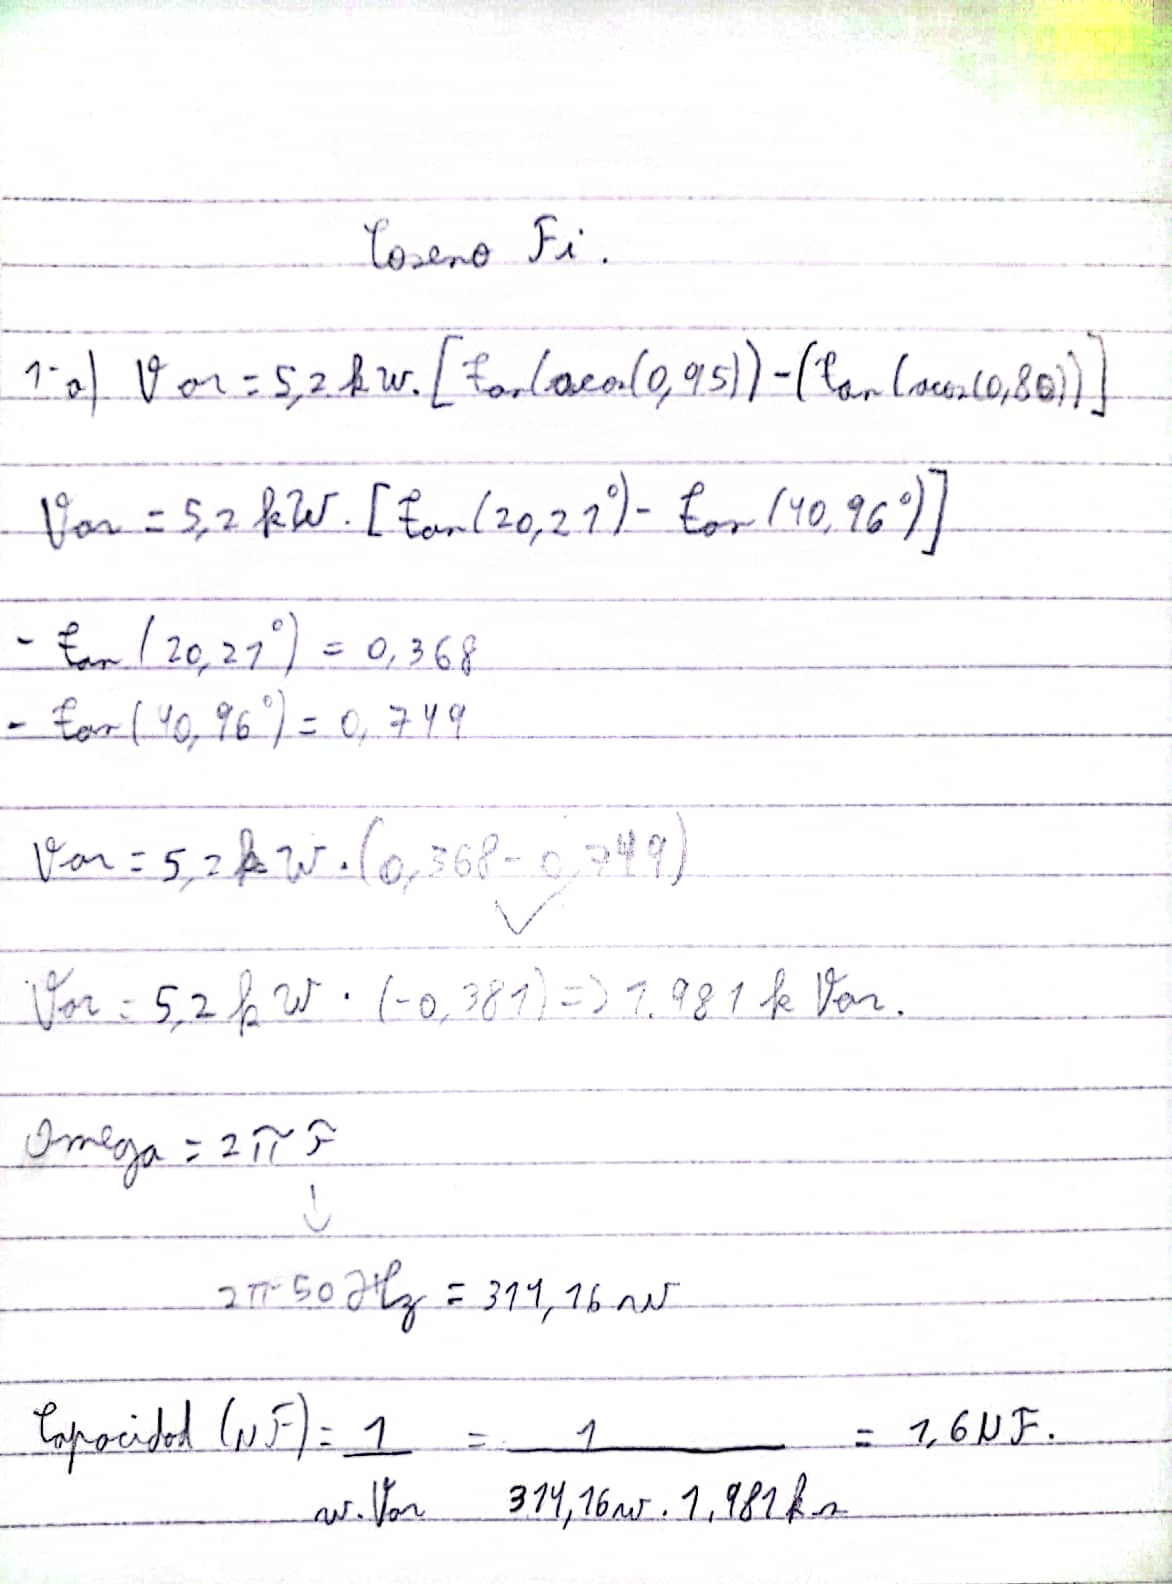 Coseno Fi.
1-a) Var = 5,2 kW. [tan(acos(0,95)) - (tan(acos(0,80))]
Var = 5,2 kW. [tan(20,21°) - tan(40,96°)]
- tan(20,21°) = 0,368
- tan(40,96°) = 0,749
Var = 5,2 kW. (0,368-0,749)
Var = 5,2 kW. (-0,381) => 1.981 k Var.
Omega = 2πF
↓
2π 50 Hz = 314,16 w
Capacidad (NF) = 1 = 1 = 1,6NF.
w. Var 314,16w. 1,981k